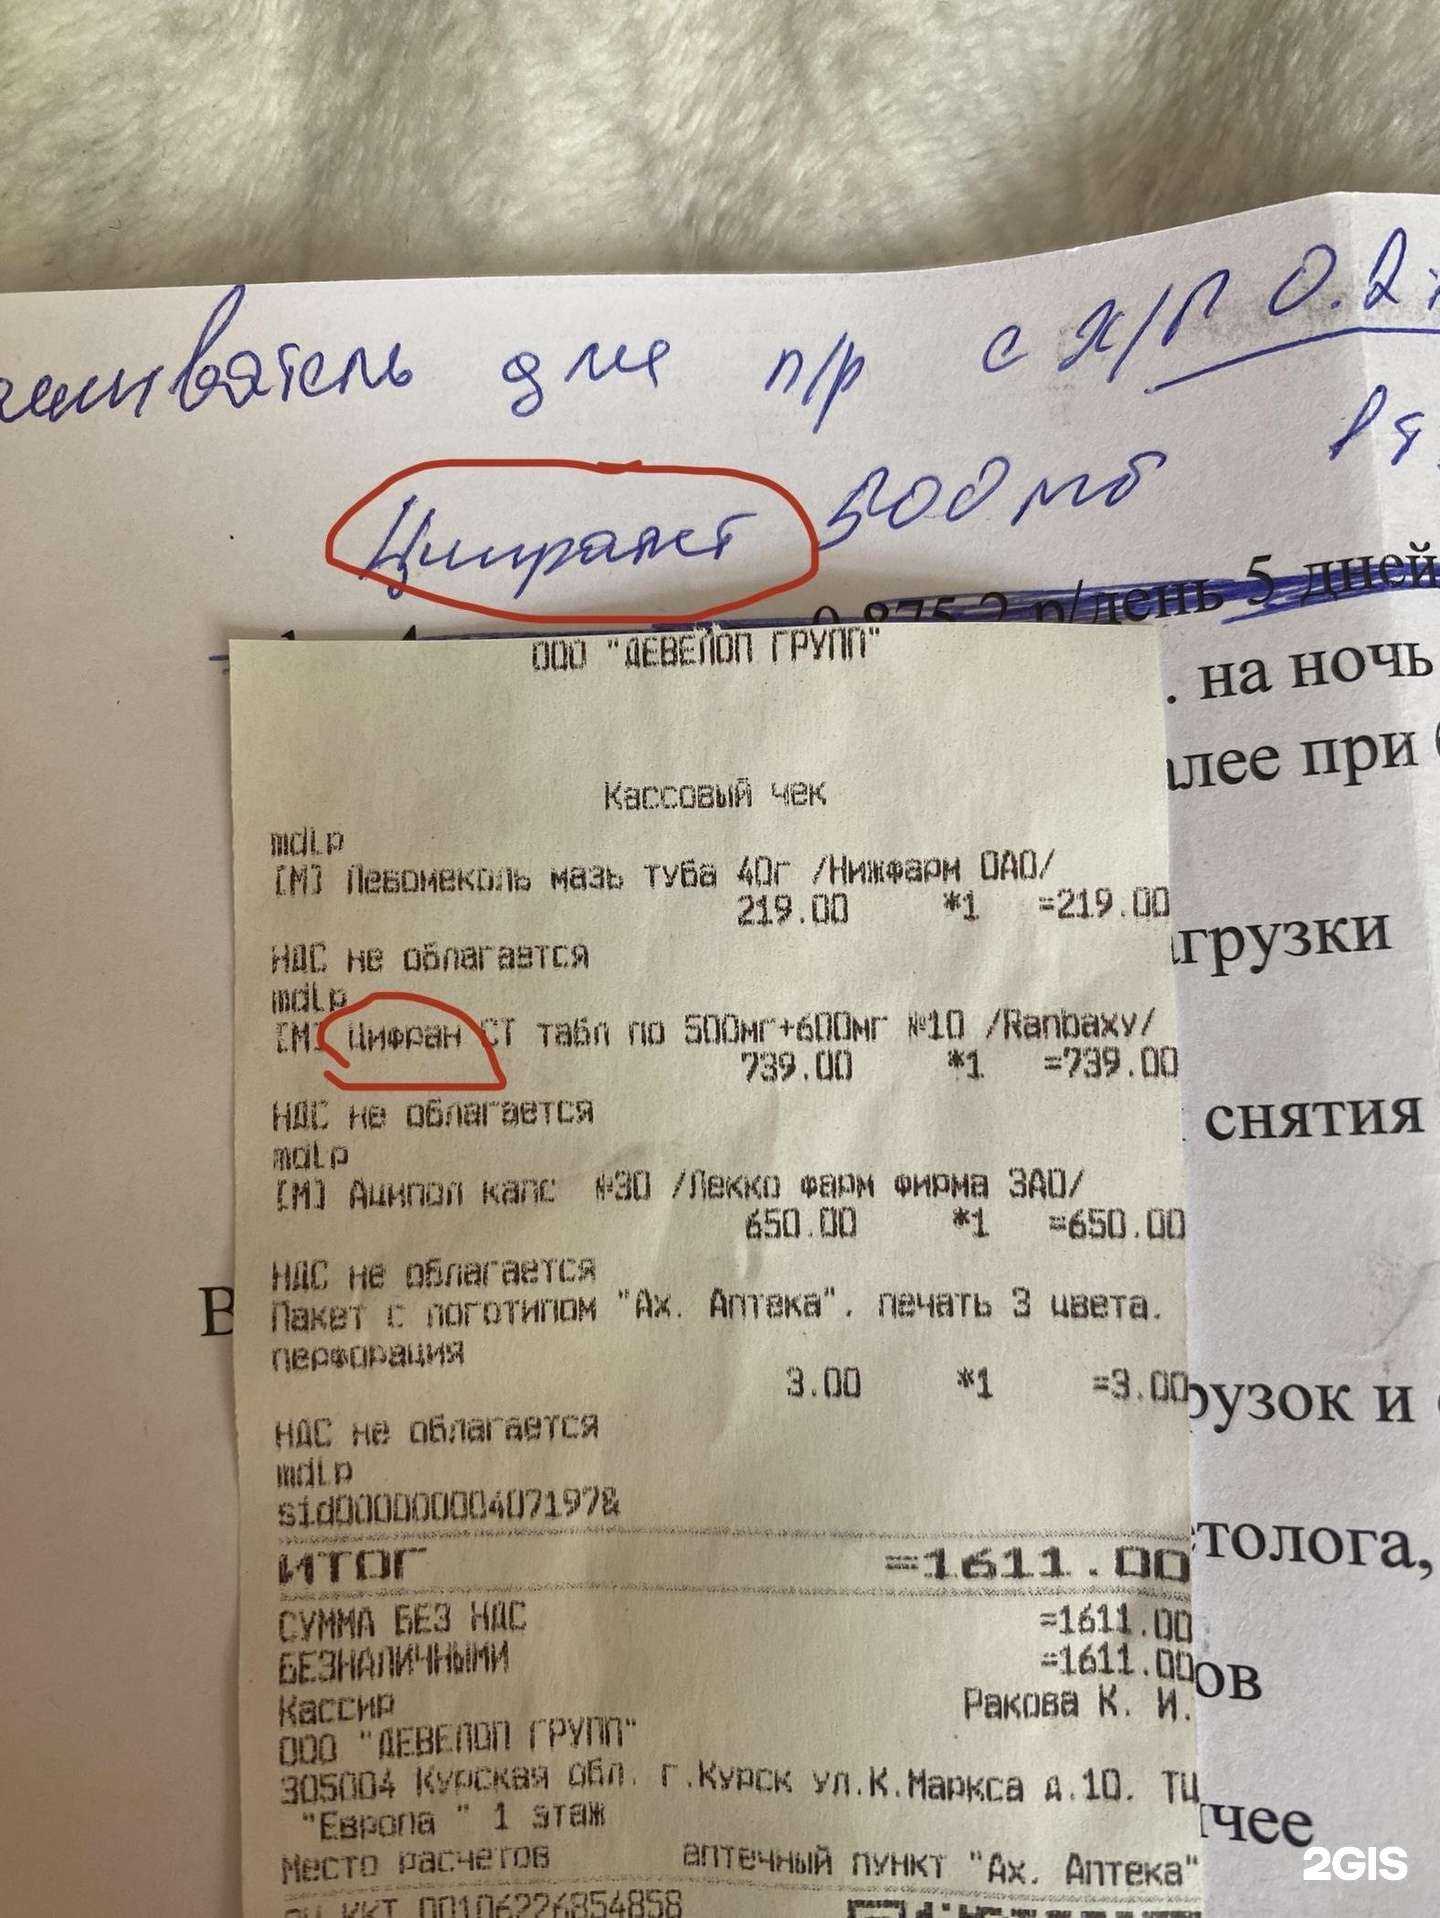 для п/р с х/г 0.2
500 мг
2 р/день 5 дней
. на ночь
алее при
агрузки
снятия
рузок и
толога,
ов
чее
В
ООО "ДЕВЕЛОП ГРУПП"
Кассовый чек
mdlp
[М] Левомеколь мазь туба 40г /Нижфарм ОАО/
219.00 *1 =219.00
НДС не облагается
mdlp
[М] Цифран СТ табл по 500мг+600мг №10 /Ranbaxy/
739.00 *1 =739.00
НДС не облагается
mdlp
[М] Аципол капс №30 /Лекко фарм фирма ЗАО/
650.00 *1 =650.00
НДС не облагается
Пакет с логотипом "Ах. Аптека", печать 3 цвета,
перфорация
3.00 *1 =3.00
НДС не облагается
mdlp
sid00000000407197&
ИТОГ =1611.00
СУММА БЕЗ НДС =1611.00
БЕЗНАЛИЧНЫМИ =1611.00
Кассир Ракова К. И.
ООО "ДЕВЕЛОП ГРУПП"
305004 Курская обл. г.Курск ул.К.Маркса д.10. ТЦ
"Европа " 1 этаж
Место расчетов аптечный пункт "Ах. Аптека"
ККТ 00106226854858
2GIS